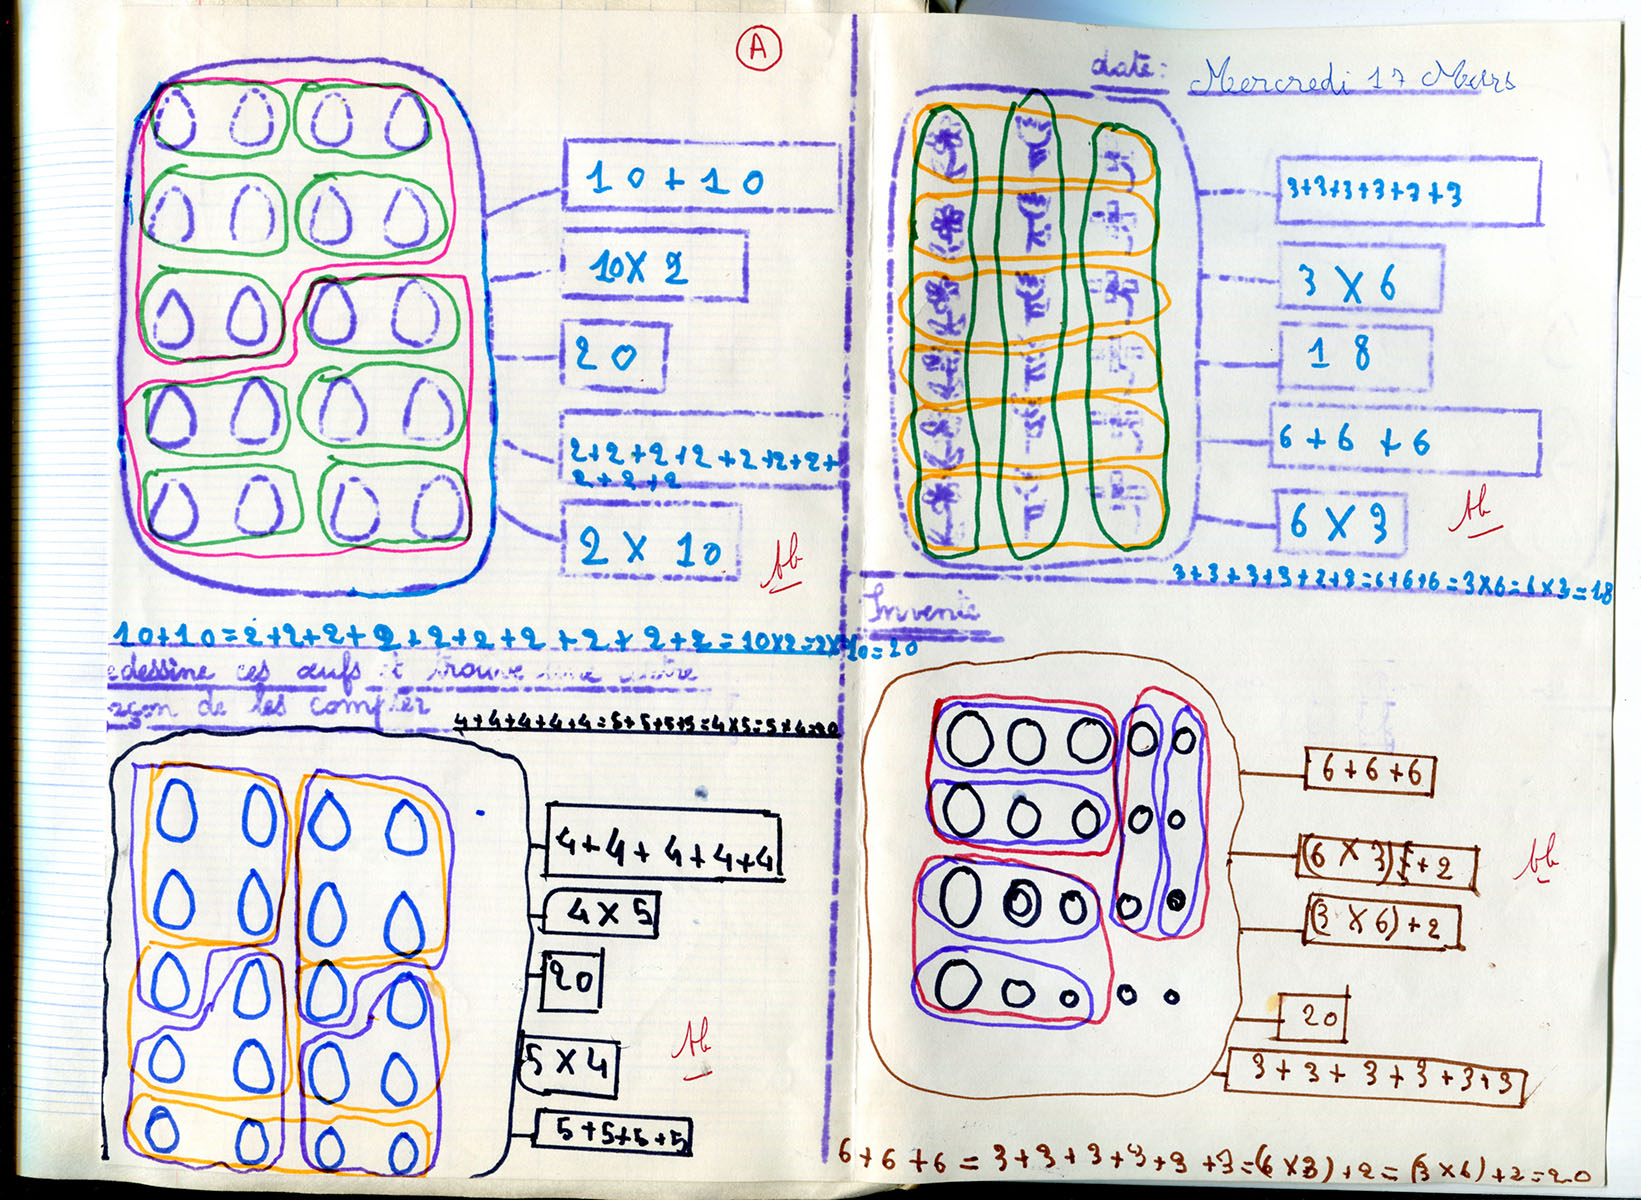 A
10+10
10X2
20
2+2+2+2+2+2+2+
2+2+2
2 X 10
tb
10+10=2+2+2+2+2+2+2+2+2+2=10X2=2X10=20
edessine ces œufs et trouve une autre
açon de les compter
4+4+4+4+4=5+5+5+5=4X5=5X4=20
4+4+4+4+4
4X5
20
5X4
5+5+5+5
tb
date: Mercredi 17 Mars
3+3+3+3+3+3
3X6
18
6+6+6
6X3
tb
3+3+3+3+3+3=6+6+6=3X6=6X3=18
Invente
6+6+6
(6X3)+2
(3X6)+2
20
3+3+3+3+3+3
tb
6+6+6=3+3+3+3+3+3=(6X3)+2=(3X6)+2=20